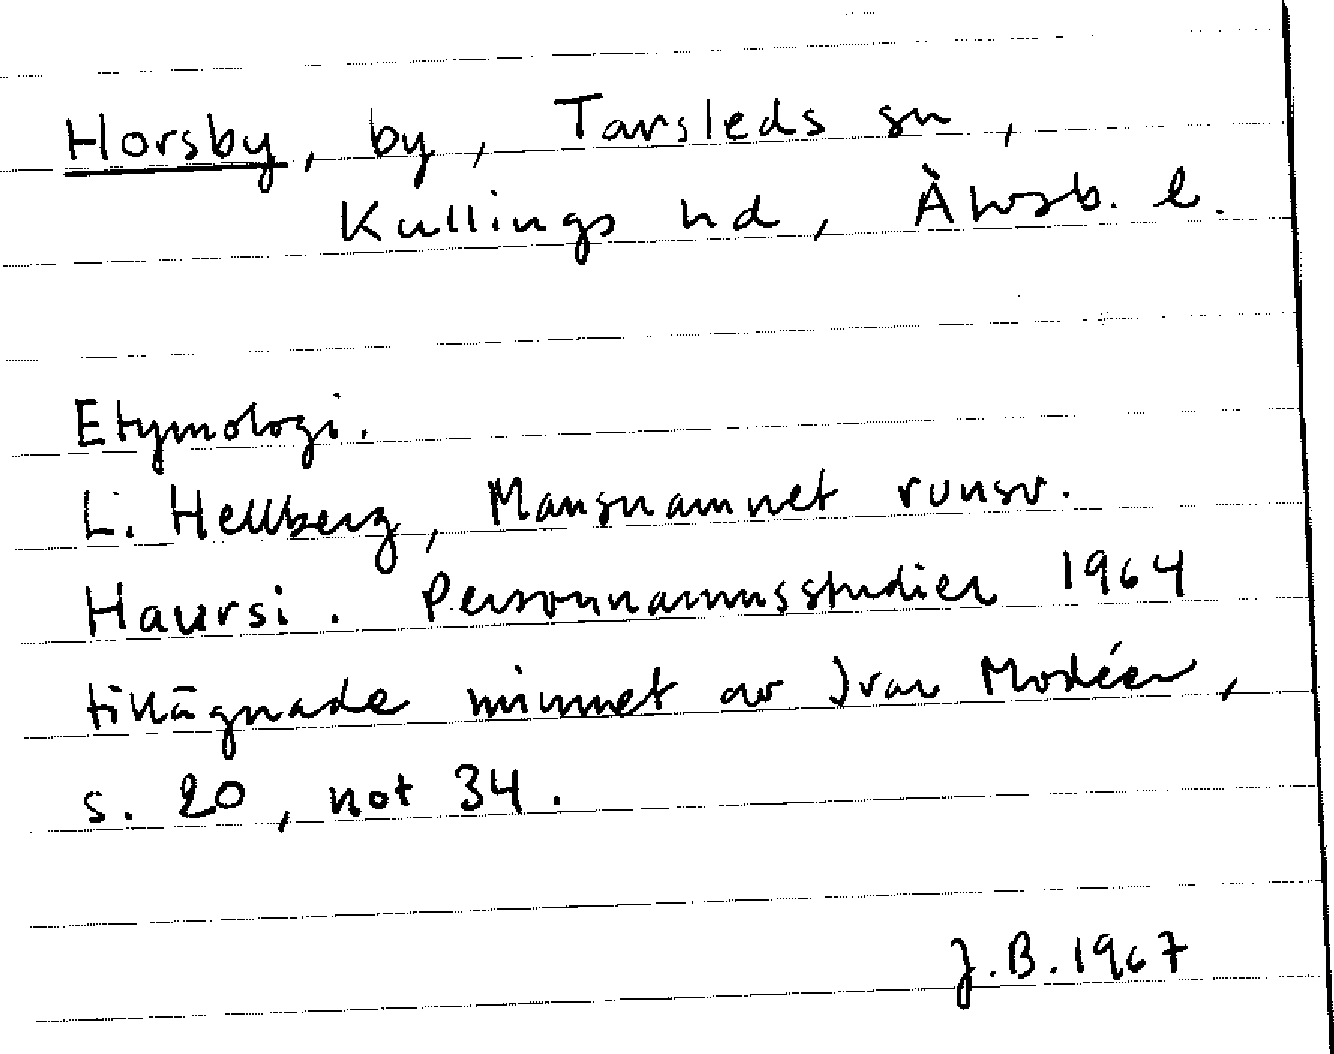 Horsby, by, Tarsleds sn,
Kullings hd, Älvsb. l.
Etymologi.
L. Hellberg, Mansnamnet runsv.
Haursi. Personnamnsstudier 1964
tillägnade minnet av Ivar Modéer,
s. 20, not 34.
J.B. 1967